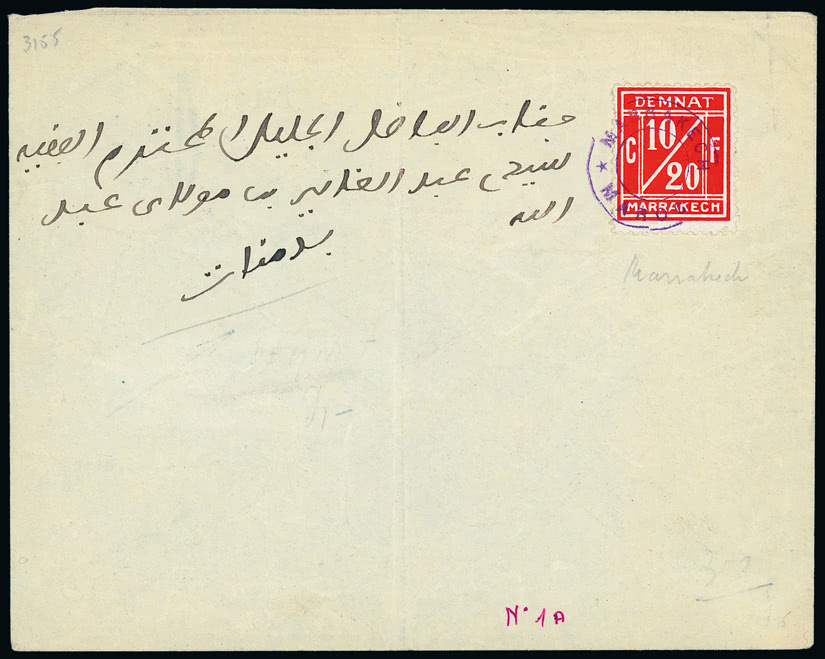 3155
جناب الفاضل الجليل المحترم الفقيه
سيدي عبد القادر بن مولاي عبد
الله
بدمنات
DEMNAT
10/20
C F
MARRAKECH
★ MARRAKECH ★ MAROC
Marrakech
N° 1A